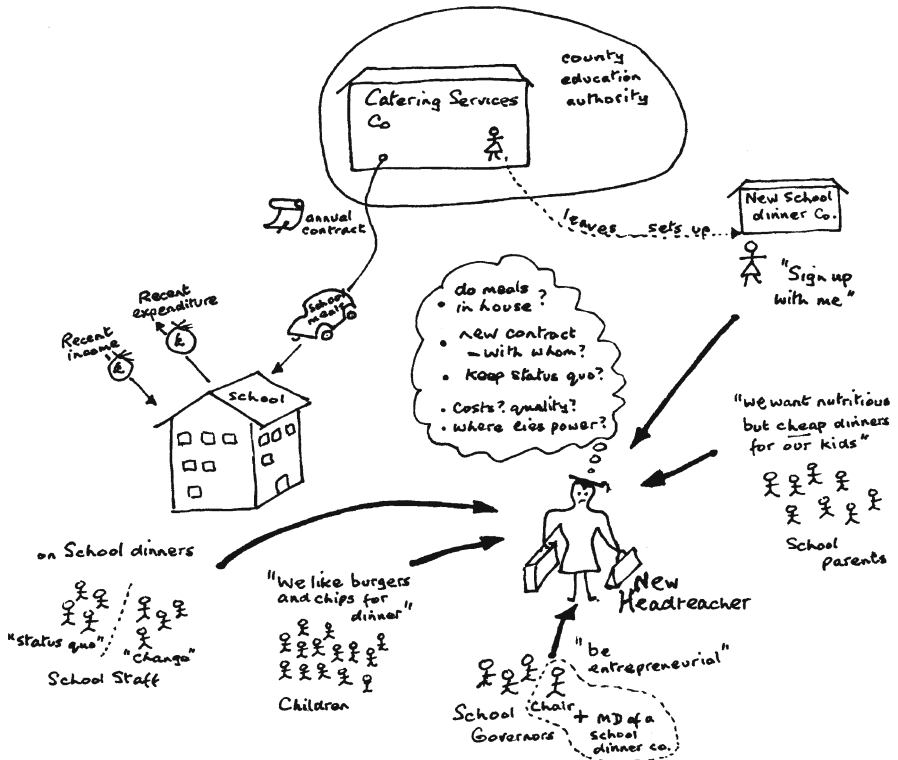 county
education
authority
Catering Services
Co
annual
contract
leaves sets up
New School
dinner Co.
"Sign up
with me"
School
meals
Recent
expenditure
£
Recent
income
£
School
• do meals
in house?
• new contract
- with whom?
• keep status quo?
• costs? quality?
• where lies power?
"We want nutritious
but cheap dinners
for our kids"
School
parents
on School dinners
"status quo"
"change"
School Staff
"We like burgers
and chips for
dinner"
Children
New
Headteacher
"be
entrepreneurial"
Chair
School
Governors
+ MD of a
school
dinner co.